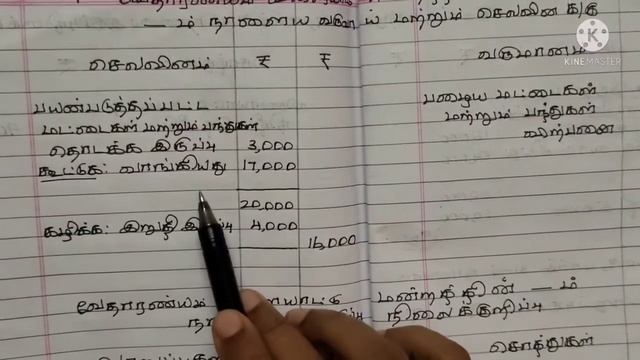 — ம் நாளைய வரவு ய் மற்றும் செலவின க்கு
செலவினம் ₹ ₹ வருமானம்
பயன்படுத்தப்பட்ட
மட்டைகள் மற்றும் பந்துகள்
தொடக்க இருப்பு 3,000
கூட்டுக: வாங்கியது 17,000
20,000
கழிக்க: இறுதி 4,000
16,000
பழைய மட்டைகள்
மற்றும் பந்துகள்
விற்பனை
வேதாரண்யம் மன்றத்தின் — ம்
நா நிலைக்குறிப்பு
சொத்துகள்
KINEMASTER